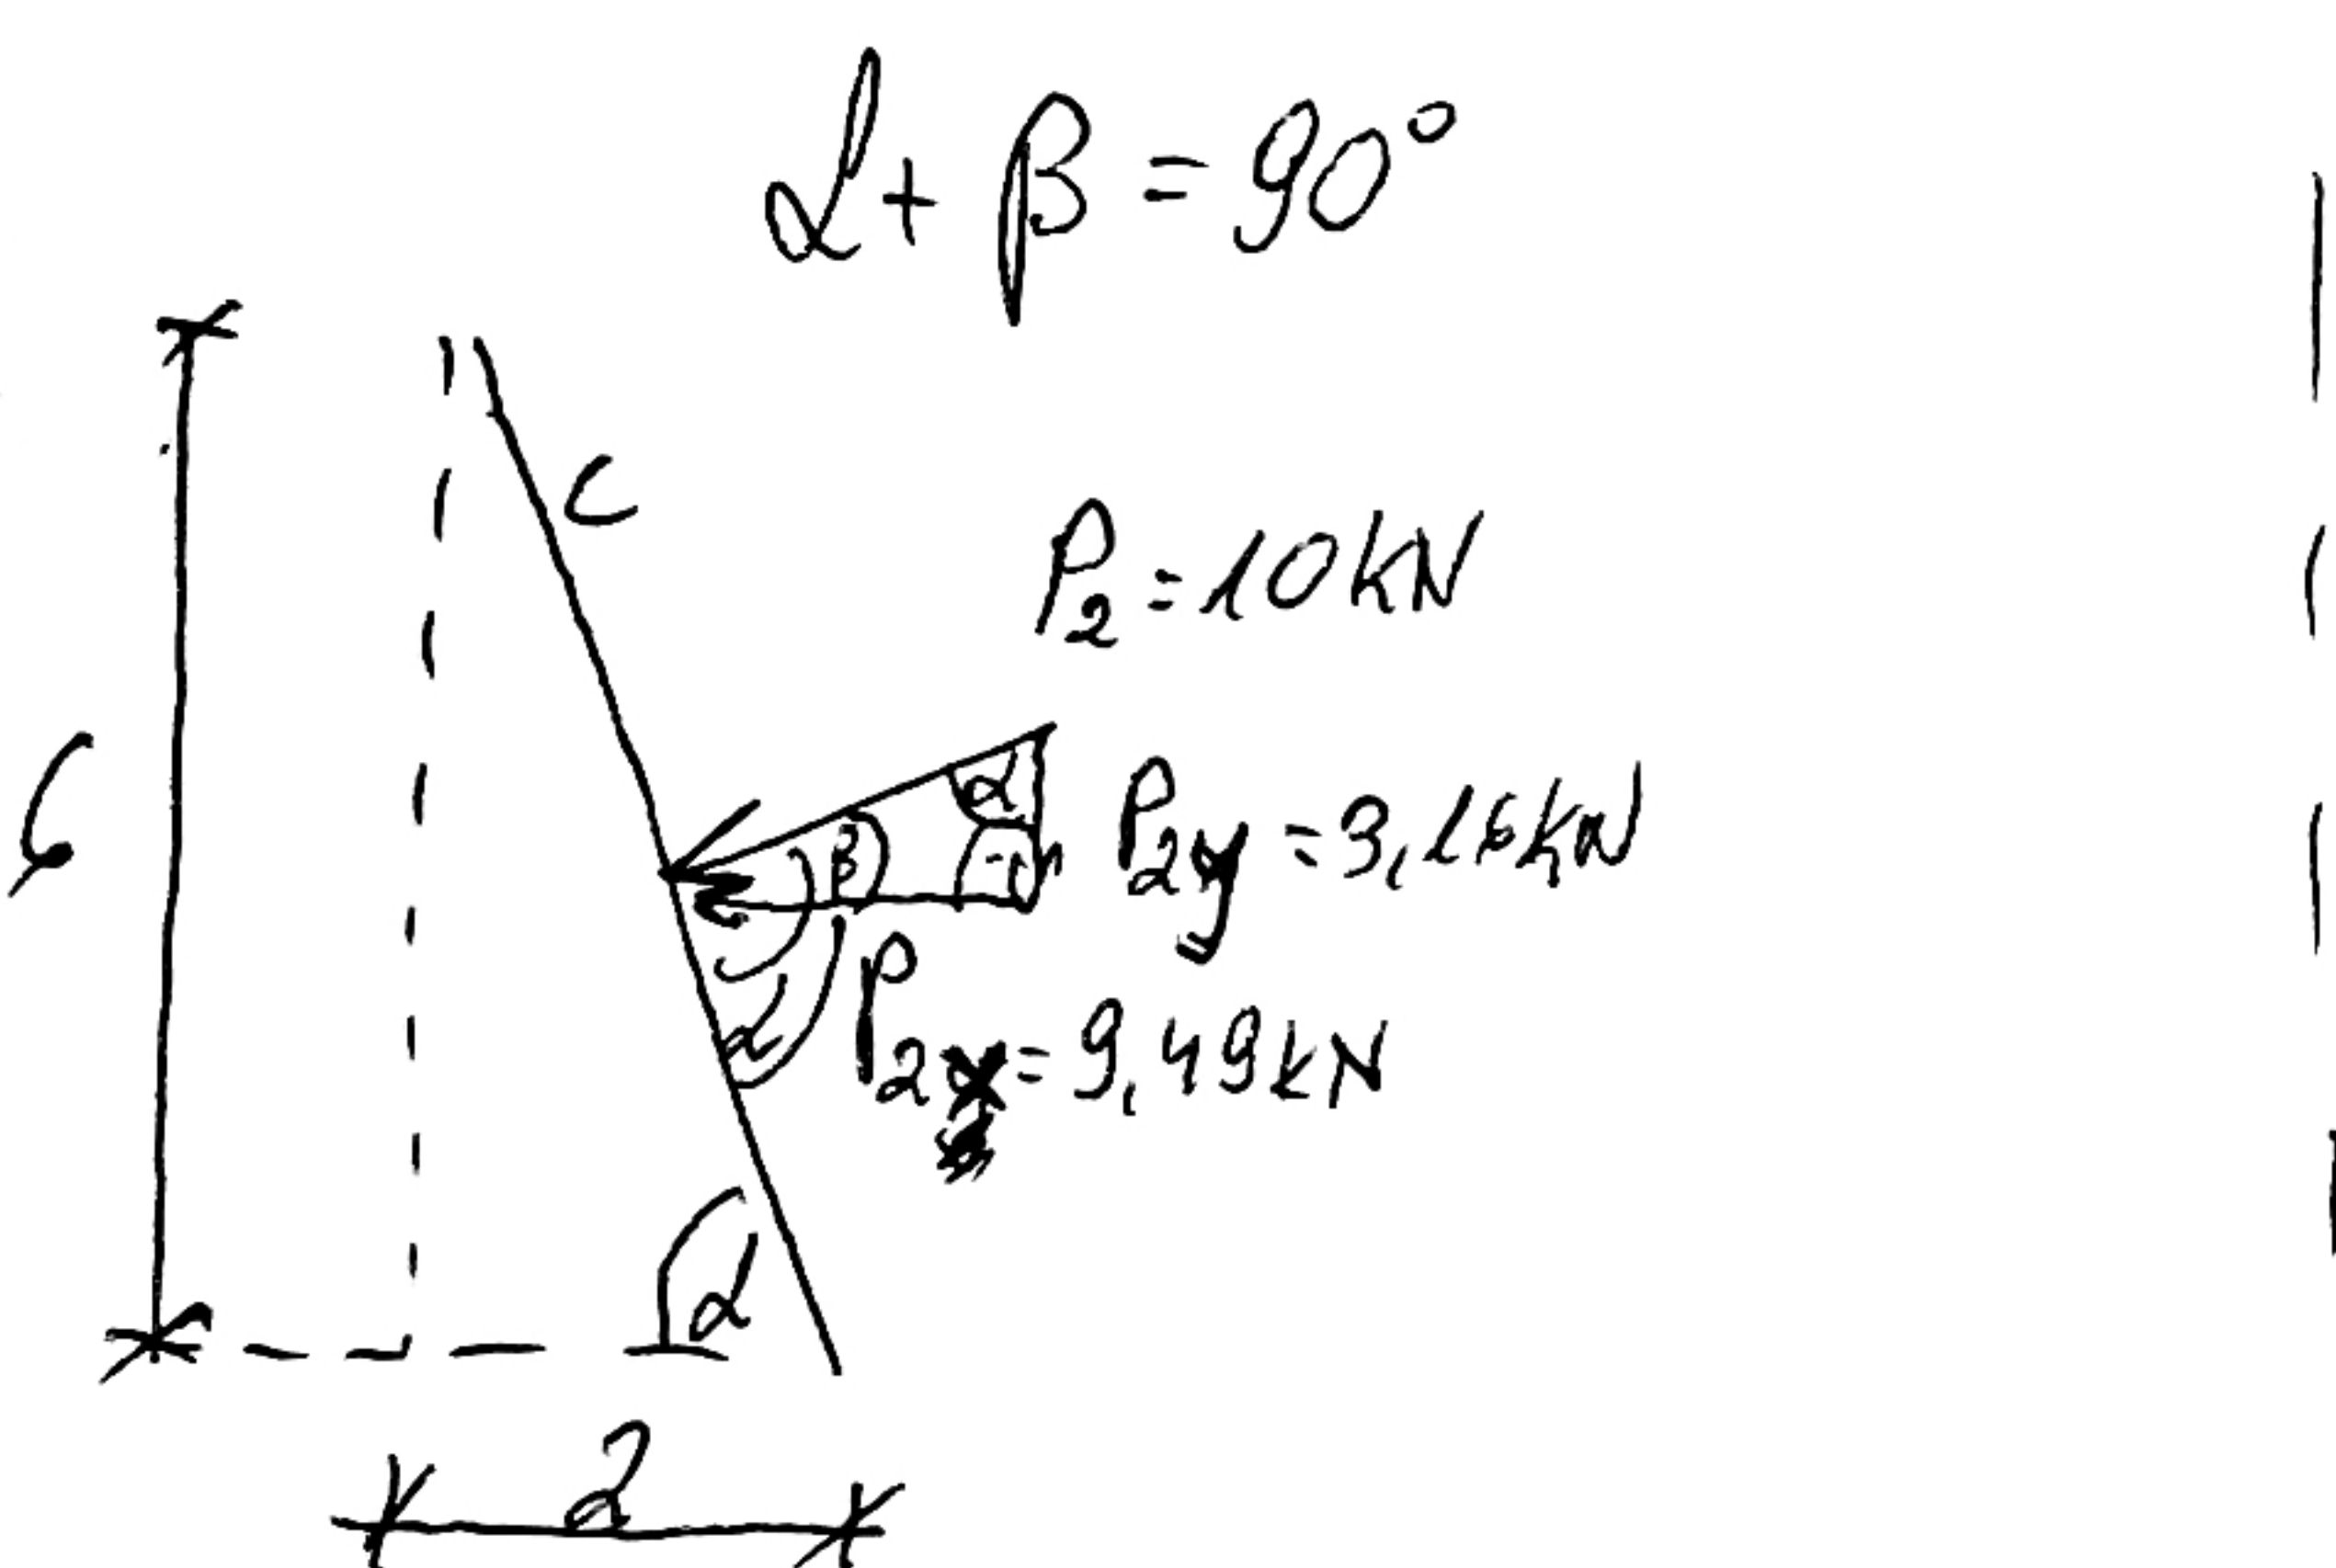 α + β = 90°
c
P₂ = 10 kN
6
α
β
P₂y = 3,16 kN
P₂x = 9,49 kN
α
α
2